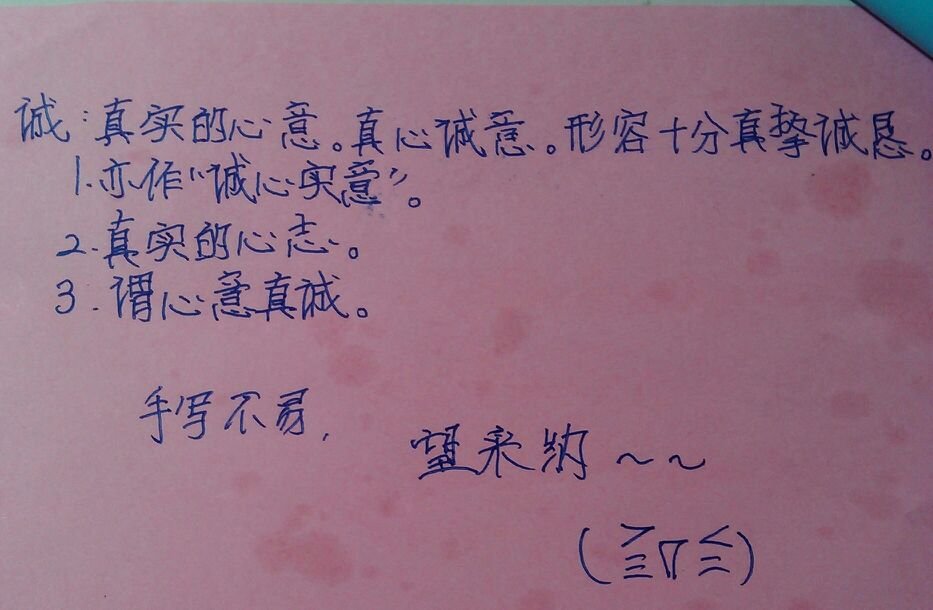 诚:真实的心意。真心诚意。形容十分真挚诚恳。
1.亦作“诚心实意”。
2.真实的心志。
3.谓心意真诚。
手写不易,
望采纳~~
(≧▽≦)